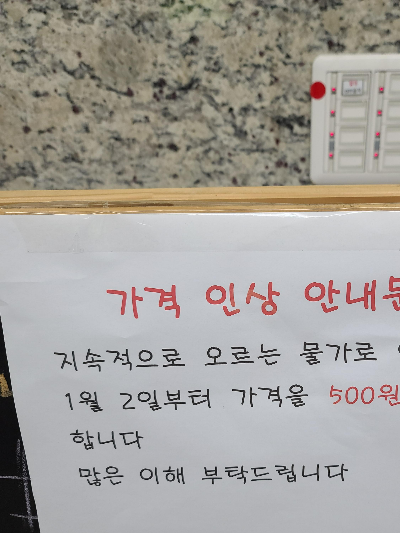 가격 인상 안내문
지속적으로 오르는 물가로
1월 2일부터 가격을 500원
합니다
많은 이해 부탁드립니다